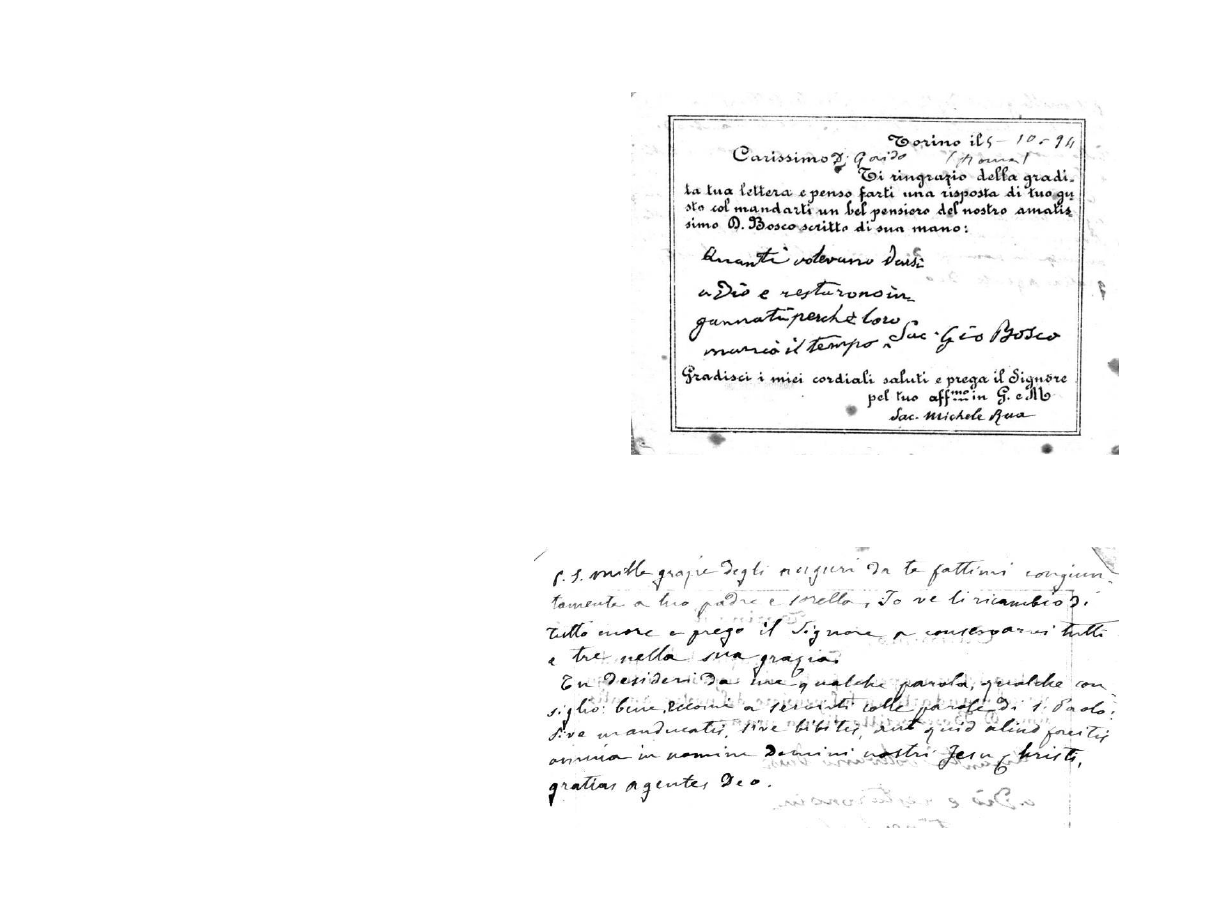 Torino il 5 - 10 - 94
Carissimo D. Gaido (Roma)
Ti ringrazio della gradi-
ta tua lettera e penso farti una risposta di tuo gu
sto col mandarti un bel pensiero del nostro amatis
simo D. Bosco scritto di sua mano:
Quanti volevano darsi
a Dio e restarono in-
gannati perchè loro
mancò il tempo
Sac. Gio Bosco
Gradisci i miei cordiali saluti e prega il Signore
pel tuo aff.mo in G. e M
Sac. Michele Rua
P. S. mille grazie degli auguri da te fattimi congiun-
tamente a tuo padre e sorella, Io ve li ricambio di
tutto cuore e prego il Signore a conservarvi tutti
e tre nella sua grazia.
Tu desideri da me qualche parola, qualche con-
siglio: bene, eccomi a servirti colle parole di S. Paolo:
Sive manducatis, sive bibitis, aut quid aliud facitis
omnia in nomine Domini nostri Jesu Christi,
gratias agentes Deo.